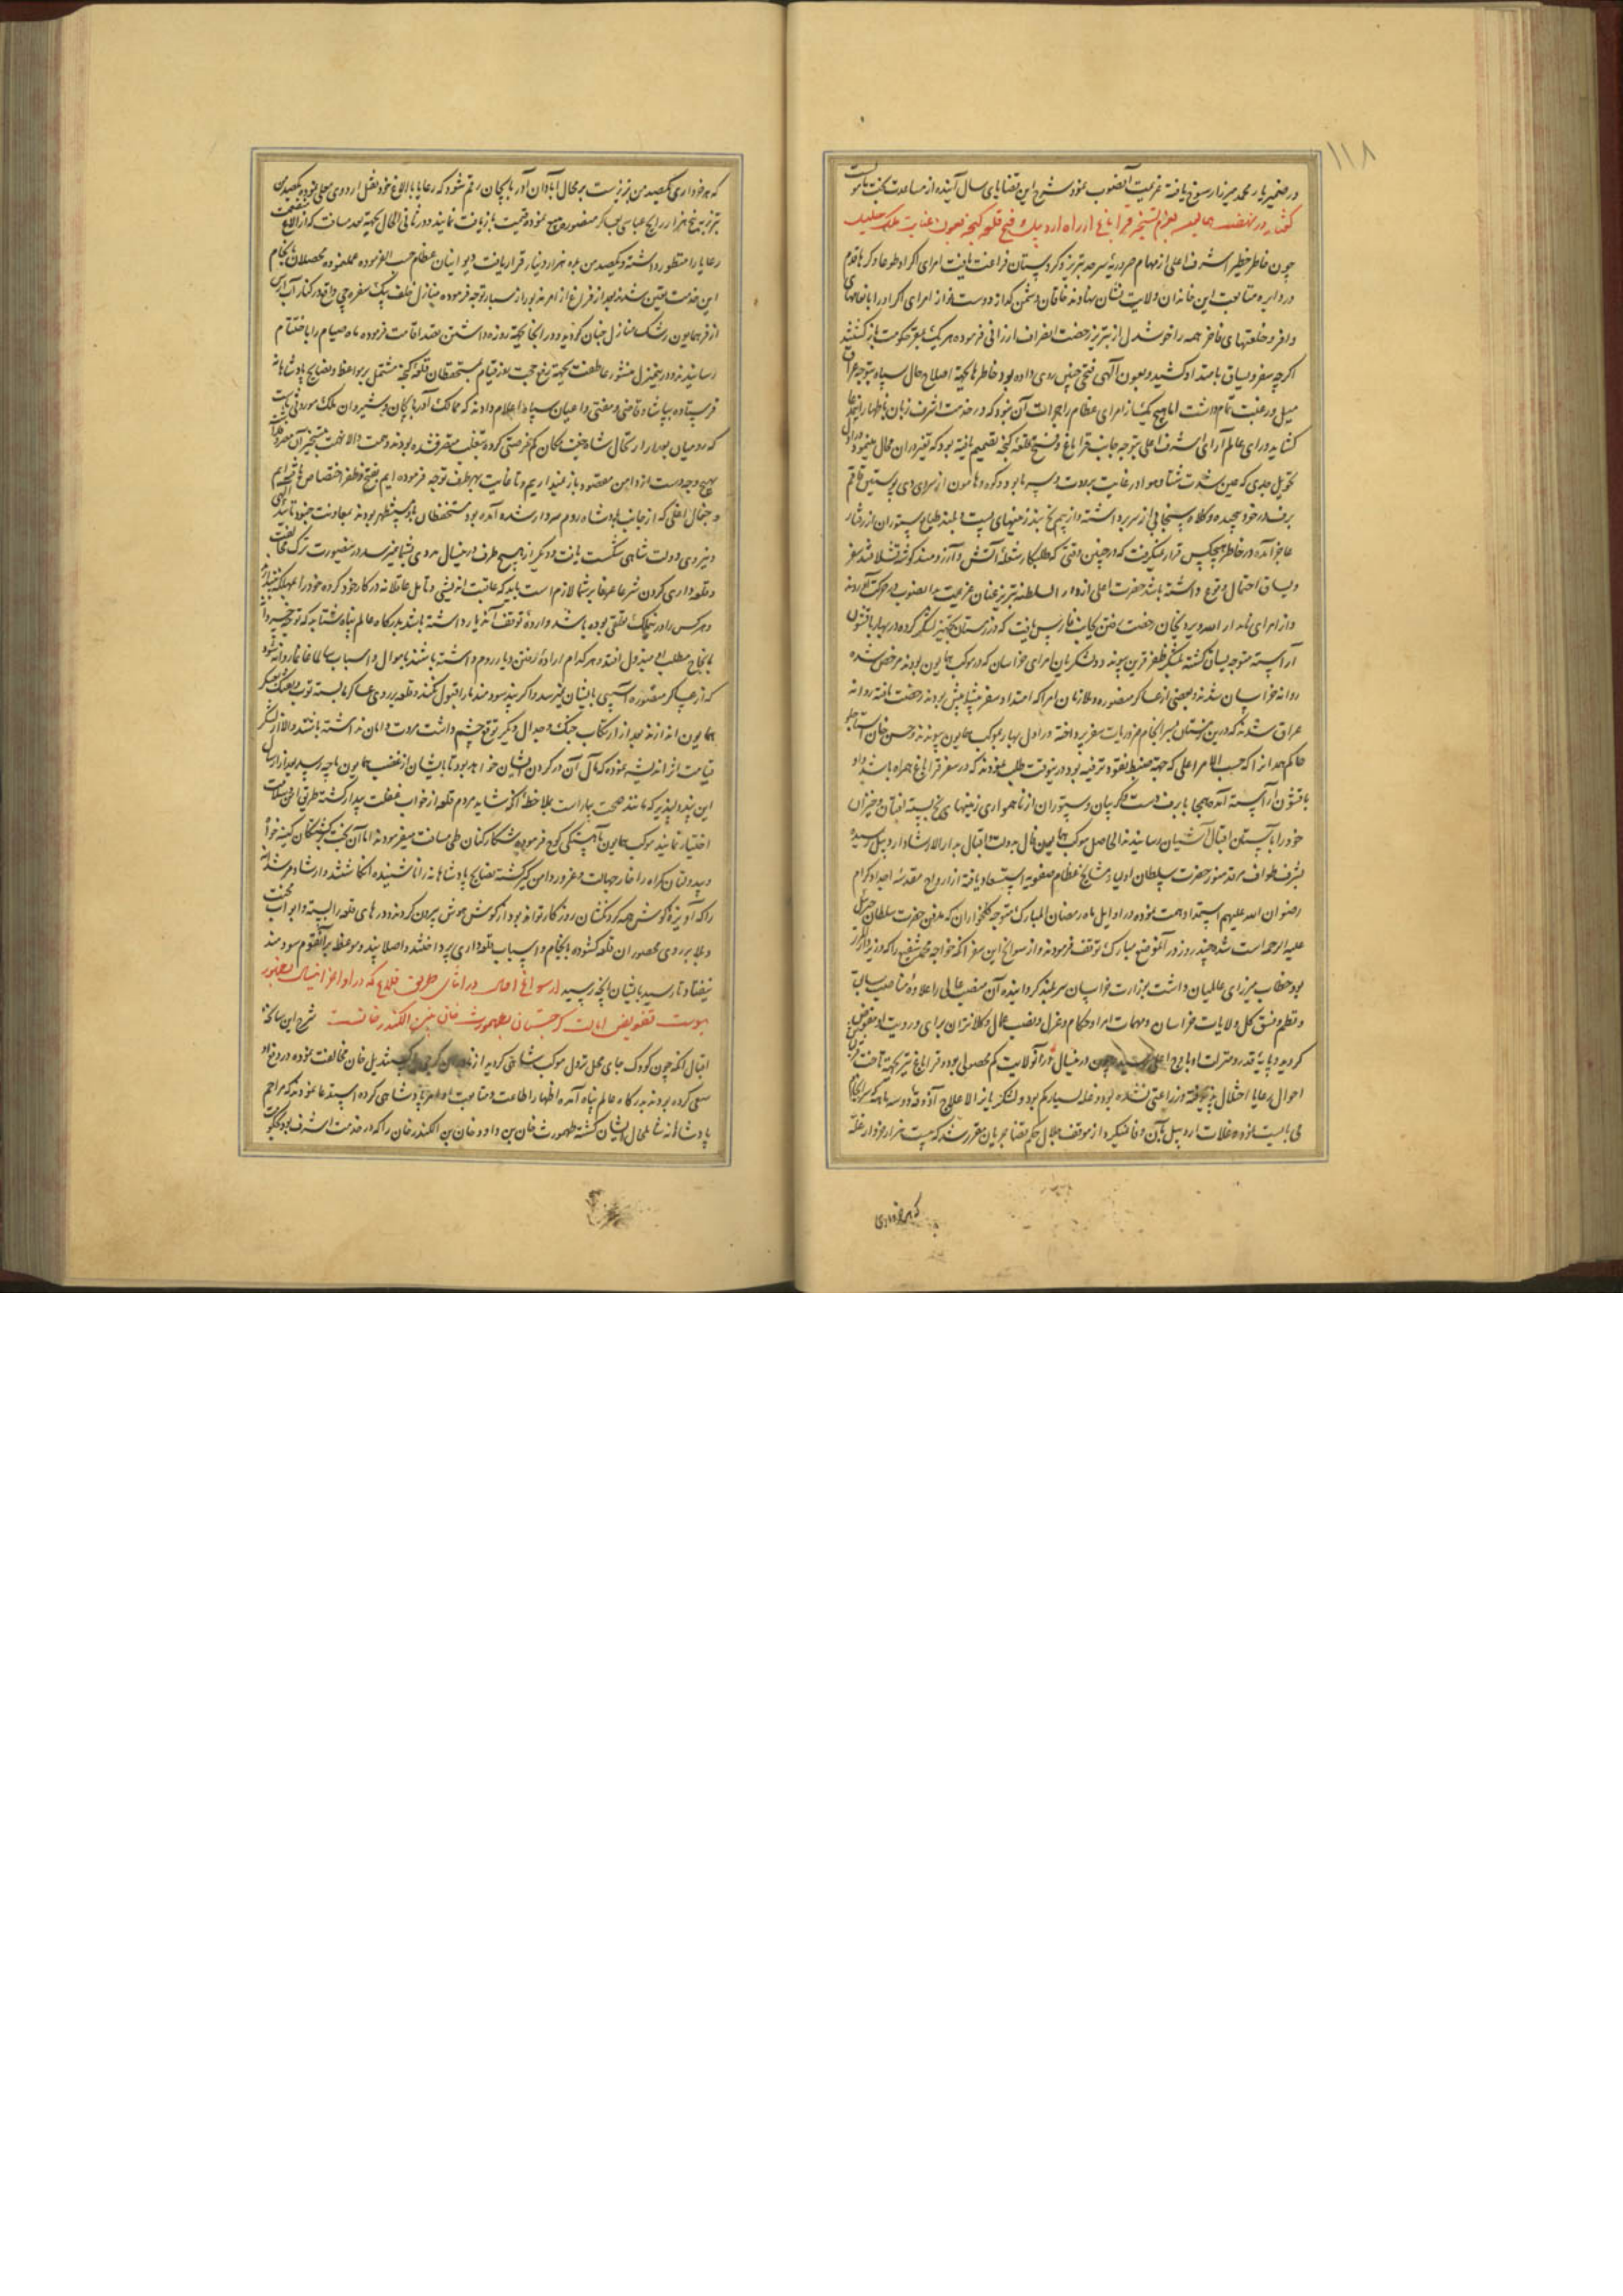 ۱۱۸
در ضمیر یار محمد میرزا رسوخ یافته عزیمت آنصوب نمود شرح این قضایای سال آینده از مساعدت بخت
گفتار در نهضت همایون بعزم تسخیر قراباغ از راه اردبیل و فتح قلعه گنجه بعون عنایت ملک جلیل
چون خاطر خطیر اشرف اعلی از مهام ضروریه سرحد تبریز و کردستان فراغت یافت امرای اکراد طوعا و کرها قدم
در دایره متابعت این خاندان ولایت نشان نهادند خاقان دشمن گداز دوست نواز امرای اکراد را بانعامهای
وافر و خلعتهای فاخر همه را خوشدل از تبریز رخصت انصراف ارزانی فرموده هر یک بمقر حکومت بازگشتند
اگرچه سفر و یساق بامتداد کشید و بعون آلهی فتحی چنین روی داده بود خاطرها بجهة اصلاح حال سپاه بتوجه عراق
میل و رغبت تمام داشت اما هیچ یک از امرای عظام را جرأت آن نبود که در خدمت اشرف زبان باظهار اینمدعا
گشاید و رای عالم آرای اشرف اعلی بتوجه جانب قراباغ و فتح قلعه گنجه تصمیم یافته بود
تحویل جدی که عین شدت شتا و هوا در غایت برودت و سرما بود و کوه و هامون از سردی دی پوستین قاقم
برف در خود پیچیده و کلاه سنجابی از سر برداشته و از بیم یخ بند زمینهای پست و بلند طبایع ستوران از رفتار
عاجز آمده در خاطر هیچکس قرار نمیگرفت که در چنین وقتی که طلبکار شعله آتش و آرزومند گوشه قشلاقند سفر
و یساق احتمال وقوع داشته باشد حضرت اعلی از دار السلطنه تبریز عنان عزیمت بدانصوب در حرکت آوردند
و از امرای نامدار الله ویردیخان رخصت رفتن بجانب فارس یافت که در زمستان تجهیز لشکر کرده در بهار با قشون
آراسته متوجه یساق گشته بلشکر ظفر قرین پیوندد و لشکریان امرای خراسان که در موکب همایون بودند مرخص شده
روانه خراسان شدند و بعضی از عساکر منصوره و ملازمان امرا که امتداد سفر بیشتر بودند رخصت یافته روانه
عراق شدند که درین زمستان بسرانجام ضروریات سفر پرداخته در اول بهار بموکب همایون پیوندند و حسن خان استاجلو
حاکم همدان را که حسب الامر اعلی که جهة ضبط نقود توقف نموده بود درینوقت طلب نمودند که در سفر قراباغ همراه باشد و او
با قشون آراسته آمده همه جا با برف دست و گریبان و ستوران از ناهمواری زمینهای یخ بسته افتان و خیزان
خود را بآستان اقبال آشیان رسانیدند الحاصل موکب همایون فال بدولت و اقبال بدار الارشاد اردبیل رسیده
بشرف طواف مرقد منور حضرت سلطان اولیا و مشایخ عظام صفویه استسعاد یافته از ارواح مقدسه اجداد کرام
رضوان الله علیهم استمداد همت نموده در اوایل ماه رمضان المبارک متوجه کلخوران که مدفن حضرت سلطان جبرئیل
علیه الرحمه است شده چند روز در آنموضع مبارک توقف فرمودند و از سوانح این سفر آنکه خواجه محمد شفیع را که
بود خطاب میرزای عالمیان داشت بوزارت خراسان سربلند گردانیده آن منصب عالی را علاوه مناصب سابق
و نظم و نسق کل ولایات خراسان و مهمات امرا و حکام و عزل و نصب عمال و کلانتران برای و رویت او تفویض
گردید و پایه قدر و منزلت او باوج اعلی رسید چون درینسال در آنولایت کم محصولی بود و قراباغ نیز بجهة تاخت
احوال رعایا اختلال پذیرفته و زراعتی نشده بود و غله بسیار کم بود و لشکریانرا لاعلاج آذوقه دو سه ماهه
می بایست نمود غلات اردبیل بآن وفا نمیکرد از موقف جلال حکم قضا جریان مقرر شد که بیست هزار خروار غله
که هر خرواری
که هر خرواری یکصد من تبریز است بر محال آبادان آذربایجان رقم شود که رعایا با الاغ خود نقل اردوی معلی نموده یکصد من
تبریز به پنج هزار دینار رایج عباسی بعساکر منصوره بیع نموده قیمت بازیافت نمایند و در ثانی الحال بجهة بعد مسافت که از الاغ
رعایا را منظور داشته و یکصد من بده هزار دینار قرار یافت دیوانیان عظام حسب الفرموده عمل نموده محصلان بانجام
این خدمت تعیین شدند بعد از فراغ از امر مزبور از مسیار توجه فرموده منازل خلف بیک سفره چی واقعه در کنار آب ارس
از فر همایون رشک منازل جنان گردید و در آنجا بجهة روزه داشتن بقصد اقامت فرموده ماه صیام را باختتام
رسانیدند و درین منزل منشور عاطفت بجهة رفع حجت بعد قیام بمستحفظان قلعه گنجه مشتمل بر مواعظ و نصایح پادشاهانه
فرستاده بپاشا و قاضی و مفتی و اعیان سپاه اعلام دادند که ممالک آذربایجان و شیروان ملک موروثی ماست
که رومیان بعد از ارتحال شاه جنت مکان کم فرصتی کرده بتغلب متصرف شده بودند و همت والا نهمت بتسخیر آن مصروفست
بهیچ وجه دست از دامن مقصود باز نمیداریم و تا غایت بهر طرف توجه فرموده ایم بفتح و ظفر اختصاص یافته ایم
و جغال اغلی که از جانب پادشاه روم سردار شده آمده بود مستحفظان بدو مستظهر بودند بمعاونت جنود تأیید الهی
و نیروی دولت شاهی شکست یافت و دیگر از هیچ طرف درینسال مددی بشما نمیرسد درینصورت ترک مخالفت
و قلعه داری کردن شرعا و عرفا بر شما لازم است باید که عاقبت اندیشی و تأمل عاقلانه در کار خود کرده خود را بمهلکه نیندازند
و هر کس را در اینملک تعلقی بوده باشد و اراده توقف آندیار داشته باشند بدرگاه عالم پناه شتابد که توجه خسروانه
بانجاح مطلب او مبذول افتد و هر کدام اراده رفتن دیار روم داشته باشند با اموال و اسباب سالما غانما روانه شوند
که از عساکر منصوره آسیبی بایشان نمیرسد و اگر پند سودمند ما را قبول نکنند و قلعه بر روی عساکر ما بسته توپ و تفنگ بلشکر
همایون اندازند بعد از ارتکاب جنگ و جدال دیگر توقع چشم داشت مروت و امان نداشته باشند و الا از لشکر
قیامت اثر اندیشه نموده که مآل آن در گردن ایشان خواهد بود تا بایشان از غضب همایون ما چه رسد بعد از ارسال
این پند دلپذیر که مانند صحت بیمار است بملاحظه آنکه شاید مردم قلعه از خواب غفلت بیدار گشته طریق اخلاص
اختیار نمایند موکب همایون بآهستگی کوچ فرموده شکارکنان طی مسافت میفرمودند اما آن بخت برگشتگان کینه خواه
و بیدولتان گمراه را خار جهالت و غرور دامن گیر گشته نصایح پادشاهانه را ناشنیده انگاشتند و ارشاد مرشدانه
را که آویزه گوش همه گردنکشان روزگار تواند بود از گوش هوش بیرون کردند و درهای قلعه را بسته و ابواب محنت
و بلا بر روی محصوران قلعه گشوده بانجام و اسباب قلعه داری پرداختند و اصلا پند و موعظه بر آنقوم سودمند
نیفتاد تا رسید بایشان آنچه رسید از سوانح اقبال در اثنای طریق قلاع که در اواخر اینسال بظهور
پیوست تفویض ایالت گرجستان بطهمورث خان بن الکسندرخانست شرح این سانحه
اقبال آنکه چون کورک جای محل نزول موکب شاهی گردید از کسندیل خان مخالفت نموده در دفع او
سعی کرده بودند بدرگاه عالم پناه آمده اظهار اطاعت و متابعت اوامر پادشاهی کرده استدعا نمودند که مراحم
پادشاهانه شامل حال ایشان گشته طهمورث خان بن داود خان بن الکسندر خان را که در خدمت اشرف بود بحکومت